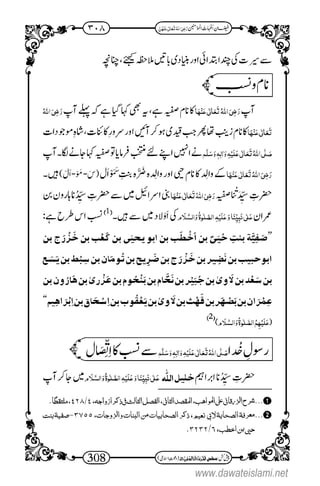 فیضانِ اُمّہاتُ المؤمنین رَضِیَ اللہُ تَعَالٰی عَنْہُنَّ ٣٠٨
سے سیرت کی چند ابتدائی اور بنیادی باتیں ملاحظہ کیجئے، چنانچہ
نام ونسب
آپ رَضِیَ اللہُ تَعَالٰی عَنْہَا کا نام صفیہ ہی ہے، یہ بھی کہا گیا ہے کہ پہلے آپ رَضِیَ اللہُ
تَعَالٰی عَنْہَا کا نام زینب تھا پھر جب قیدی ہو کر آئیں اور سرورِ کائنات، شاہِ موجودات
صَلَّی اللہُ تَعَالٰی عَلَیْہِ وَاٰلِہٖ وَسَلَّم نے انہیں اپنے لئے منتخب فرمایا تو صفیہ کہا جانے لگا۔ آپ
رَضِیَ اللہُ تَعَالٰی عَنْہَا کے والد کا نام حیی اور والدہ ضرہ بنتِ سَمَوْاَل (سَ-مَوْ-اَل) ہیں۔
حضرتِ سیِّدتنا صفیہ رَضِیَ اللہُ تَعَالٰی عَنْہَا بنی اسرائیل میں سے حضرتِ سیِّدنا ہارون بن
عمران عَلٰی نَبِیِّنَا وَعَلَیْہِ الصَّلٰوۃُ وَالسَّلَام کی اولاد میں سے ہیں۔ (1) نسب اس طرح ہے:
”صَفِیَّہ بنتِ حُیَیّ بن اَخْطَب بن ابو یحیی بن کَعْب بن خَزْرَج بن
ابو حبیب بن نَضِیْر بن خَزْرَج بن صَرِیْح بن تُومَان بن سِبْط بن یَسَع
بن سَعْد بن لَاوِیْ بن جُبَیْر بن نَحَّام بن یَنْحُوْم بن عَزْرِیْ بن ہارون بن
عِمْرَان بن یَصْہَر بن قَہْث بن لَاوِیْ بن یَعْقُوْب بن اِسْحَاق بن اِبْرَاہیم“
(عَلَیْہِمُ الصَّلٰوۃُ وَالسَّلَام)(2)
رسولِ خُدا صَلَّی اللہُ تَعَالٰی عَلَیْہِ وَاٰلِہٖ وَسَلَّم سے نسب کا اِتِّصَال
حضرتِ سیِّدنا ابراہیم خلیلُ اللہ عَلٰی نَبِیِّنَا وَعَلَیْہِ الصَّلٰوۃُ وَالسَّلَام میں جا کر آپ
1... شرح الزرقانی علی المواہب، المقصد الثانی، الفصل الثالث فی ذکر ازواجہ، ٤/٤٢٨، ملتقطًا.
2... معرفۃ الصحابۃ لابی نعیم، ذکر الصحابیات من البنات والزوجات، ٣٧٥٥-صفیۃ بنت
حیی بن اخطب، ٦/٣٢٣٢.
308
www.dawateislami.net